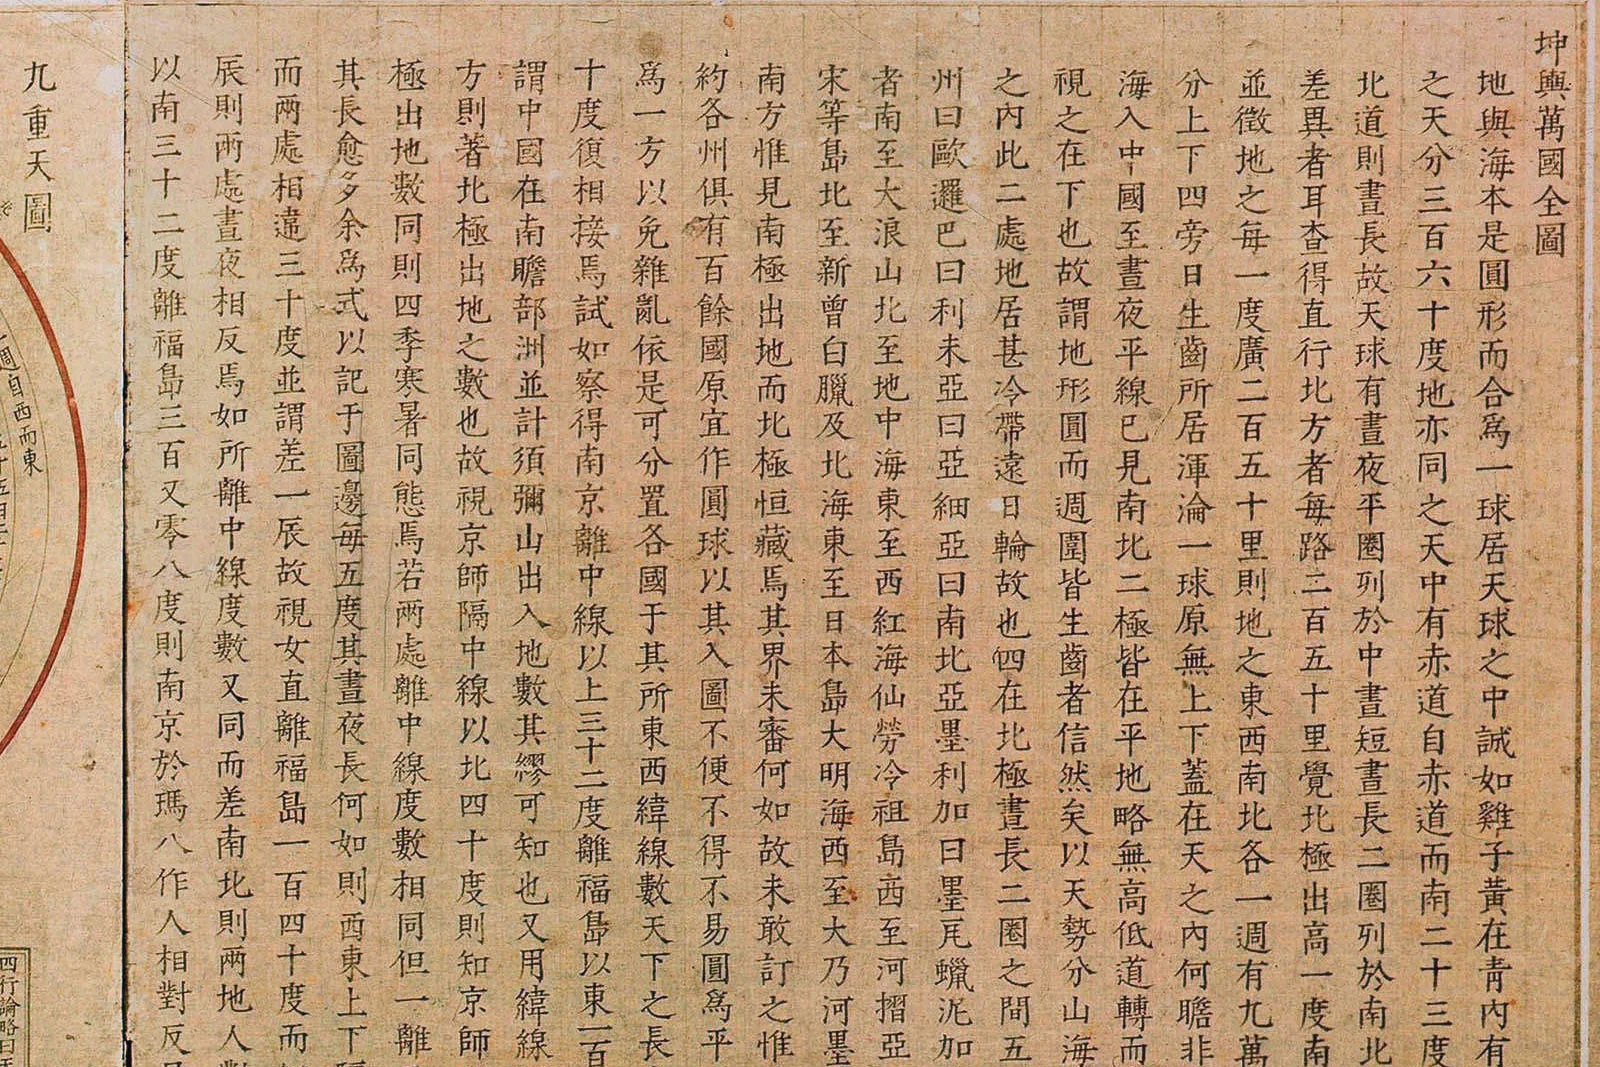 坤輿萬國全圖
地與海本是圓形而合爲一球居天球之中誠如雞子黃在青內有
之天分三百六十度地亦同之天中有赤道自赤道而南二十三度
北道則晝長故天球有晝夜平圈列於中晝短晝長二圈列於南北
差異者耳查得直行北方者每路二百五十里覺北極出高一度南
並徵地之每一度廣二百五十里則地之東西南北各一週有九萬
分上下四旁日生齒所居渾淪一球原無上下蓋在天之內何瞻非
海入中國至晝夜平線已見南北二極皆在平地略無高低道轉而
視之在下也故謂地形圓而週圍皆生齒者信然矣以天勢分山海
之內此二處地居甚冷帶遠日輪故也四在北極晝長二圈之間五
州曰歐邏巴曰利未亞曰亞細亞曰南北亞墨利加曰墨瓦蠟泥加
者南至大浪山北至地中海東至西紅海仙勞冷祖島西至河摺亞
宋等島北至新曾白臘及北海東至日本島大明海西至大乃河墨
南方惟見南極出地而北極恒藏焉其界未審何如故未敢訂之惟
約各州俱有百餘國原宜作圓球以其入圖不便不得不易圓爲平
爲一方以免雜亂依是可分置各國于其所東西緯線數天下之長
十度復相接焉試如察得南京離中線以上三十二度離福島以東一百
謂中國在南瞻部洲並計須彌山出入地數其繆可知也又用緯線
方則著北極出地之數也故視京師隔中線以北四十度則知京師
極出地數同則四季寒暑同態焉若兩處離中線度數相同但一離
其長愈多余爲式以記于圖邊每五度其晝夜長何如則西東上下
而兩處相違三十度並謂差一辰故視女直離福島一百四十度而
辰則兩處晝夜相反焉如所離中線度數又同而差南北則兩地人
以南三十二度離福島三百又零八度則南京於瑪八作人相對反
九重天圖
週自西而東
四行論略曰